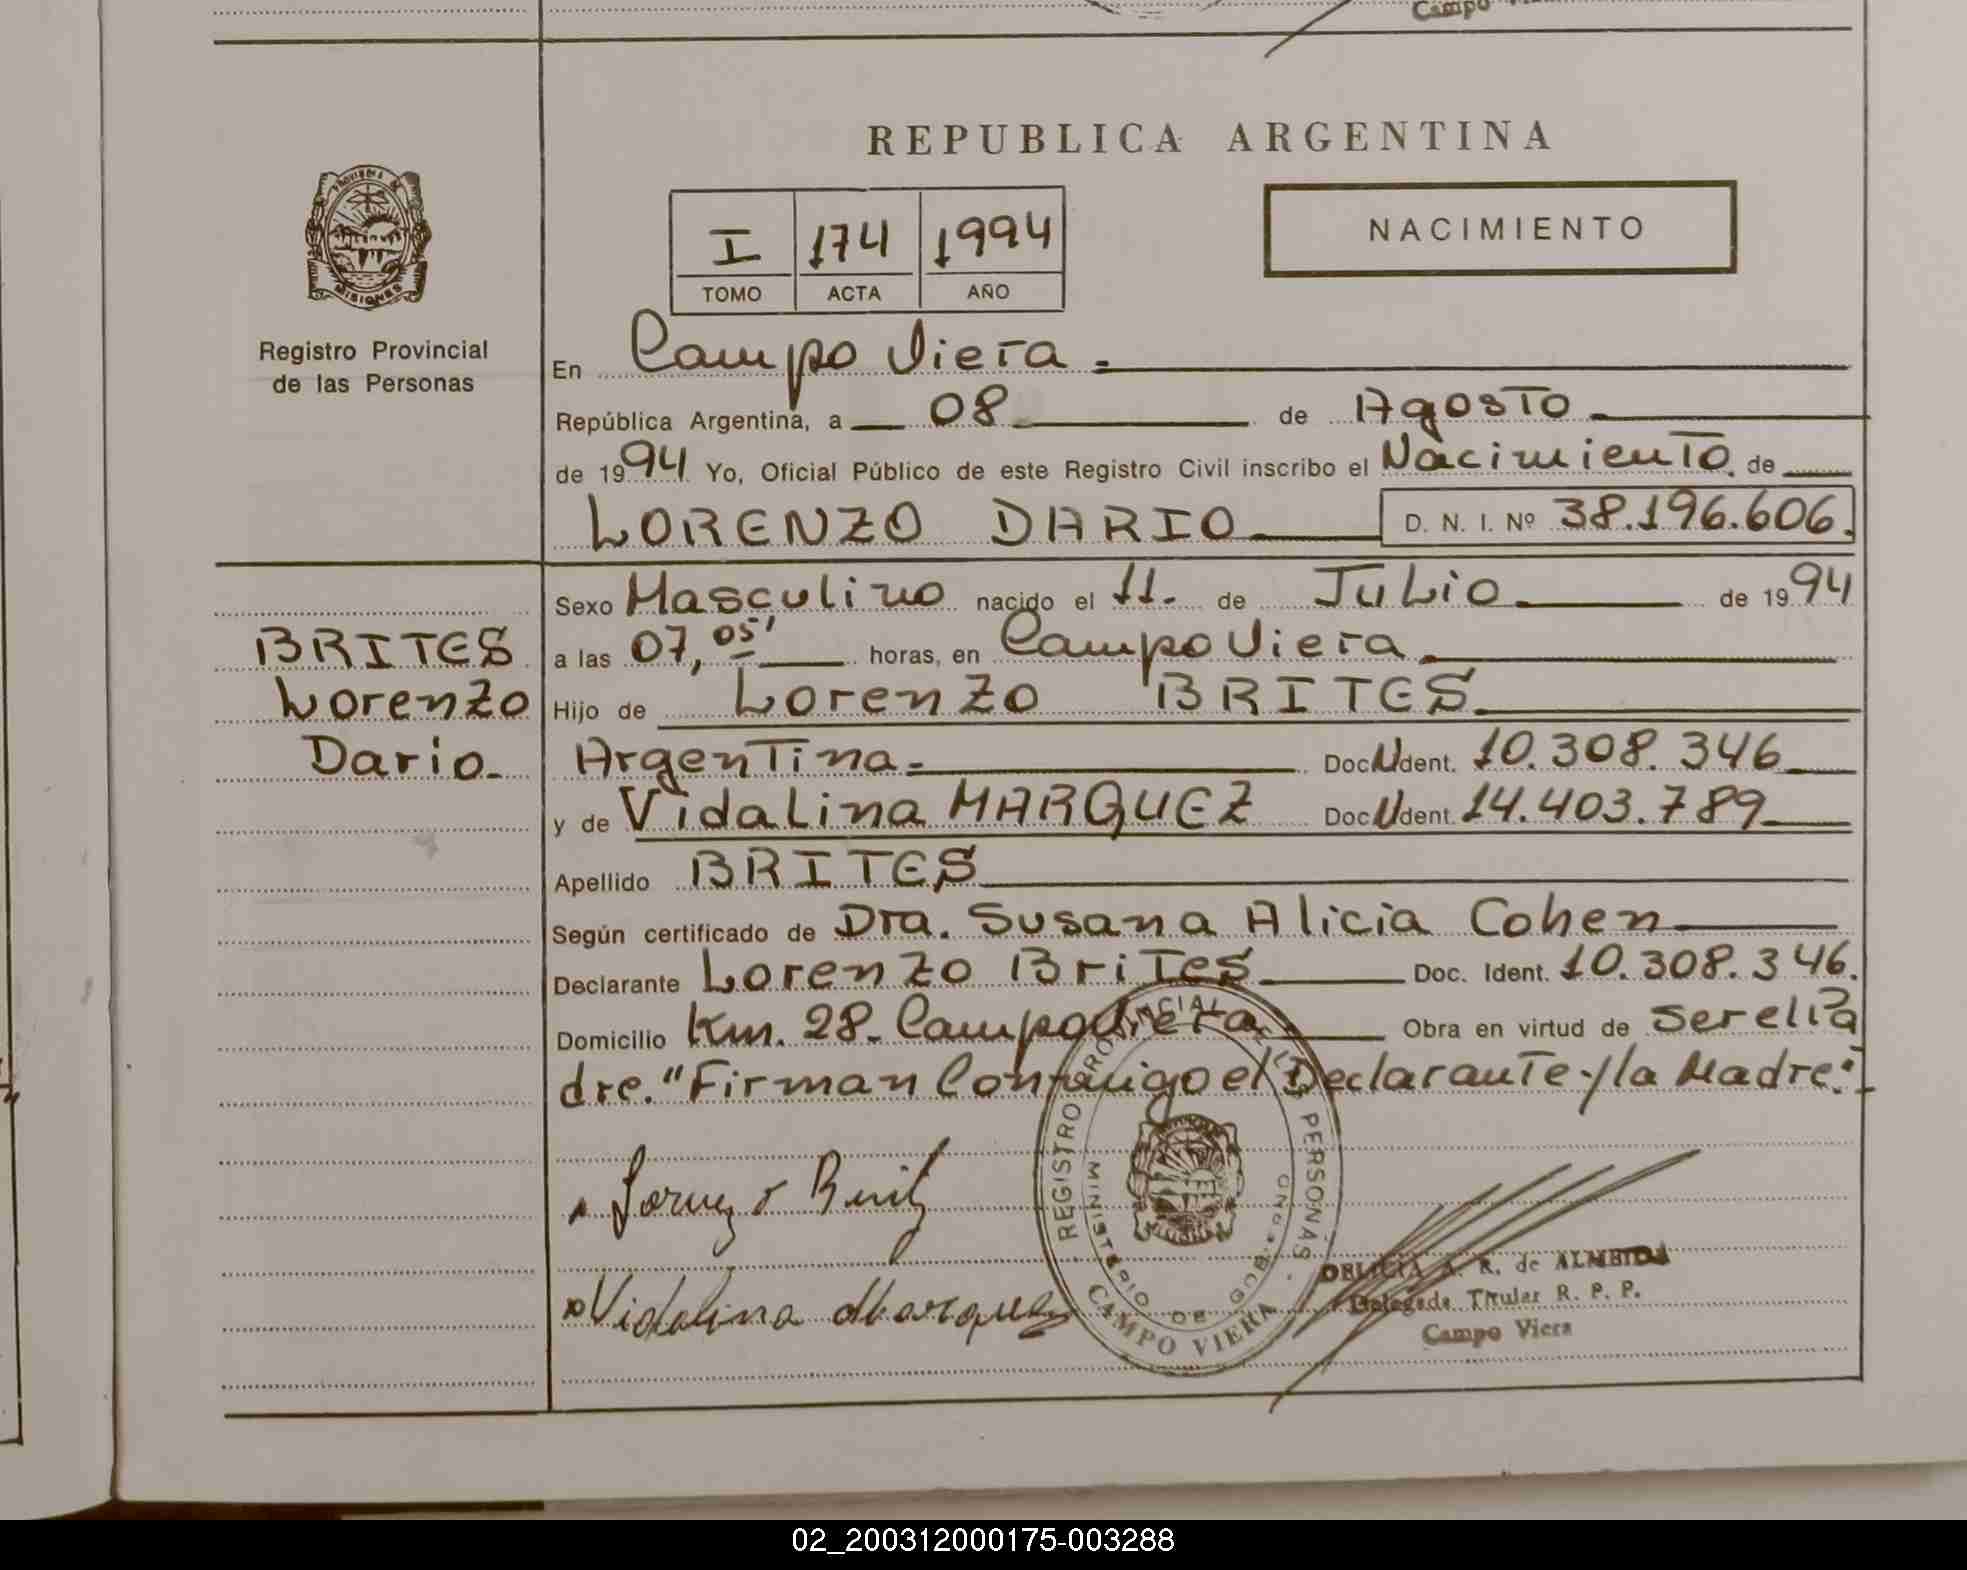 Campo
REPUBLICA ARGENTINA
PROVINCIA DE
MISIONES
I 174 1994
TOMO ACTA AÑO
NACIMIENTO
Registro Provincial
de las Personas
En Campo Viera.
República Argentina, a 08 de Agosto
de 1994 Yo, Oficial Público de este Registro Civil inscribo el Nacimiento de
LORENZO DARIO D. N. I. Nº 38.196.606.
Sexo Masculino nacido el 11. de Julio de 1994
BRITES
Lorenzo
Dario.
a las 07,05' horas, en Campo Viera
Hijo de Lorenzo BRITES
Argentina. Doc. Ident. 10.308.346
y de Vidalina MARQUEZ Doc. Ident. 14.403.789
Apellido BRITES
Según certificado de Dra. Susana Alicia Cohen
Declarante Lorenzo Brites Doc. Ident. 10.308.346.
Domicilio Km. 28. Campo Viera Obra en virtud de ser el Pa
dre. "Firman Conmigo el Declarante y la Madre."
REGISTRO PROVINCIAL DE LAS PERSONAS
MINISTERIO DE GOB.
CAMPO VIERA
Vidalina Marquez
DELICIA A. R. de ALMEIDA
Delegada Titular R. P. P.
Campo Viera
02_200312000175-003288